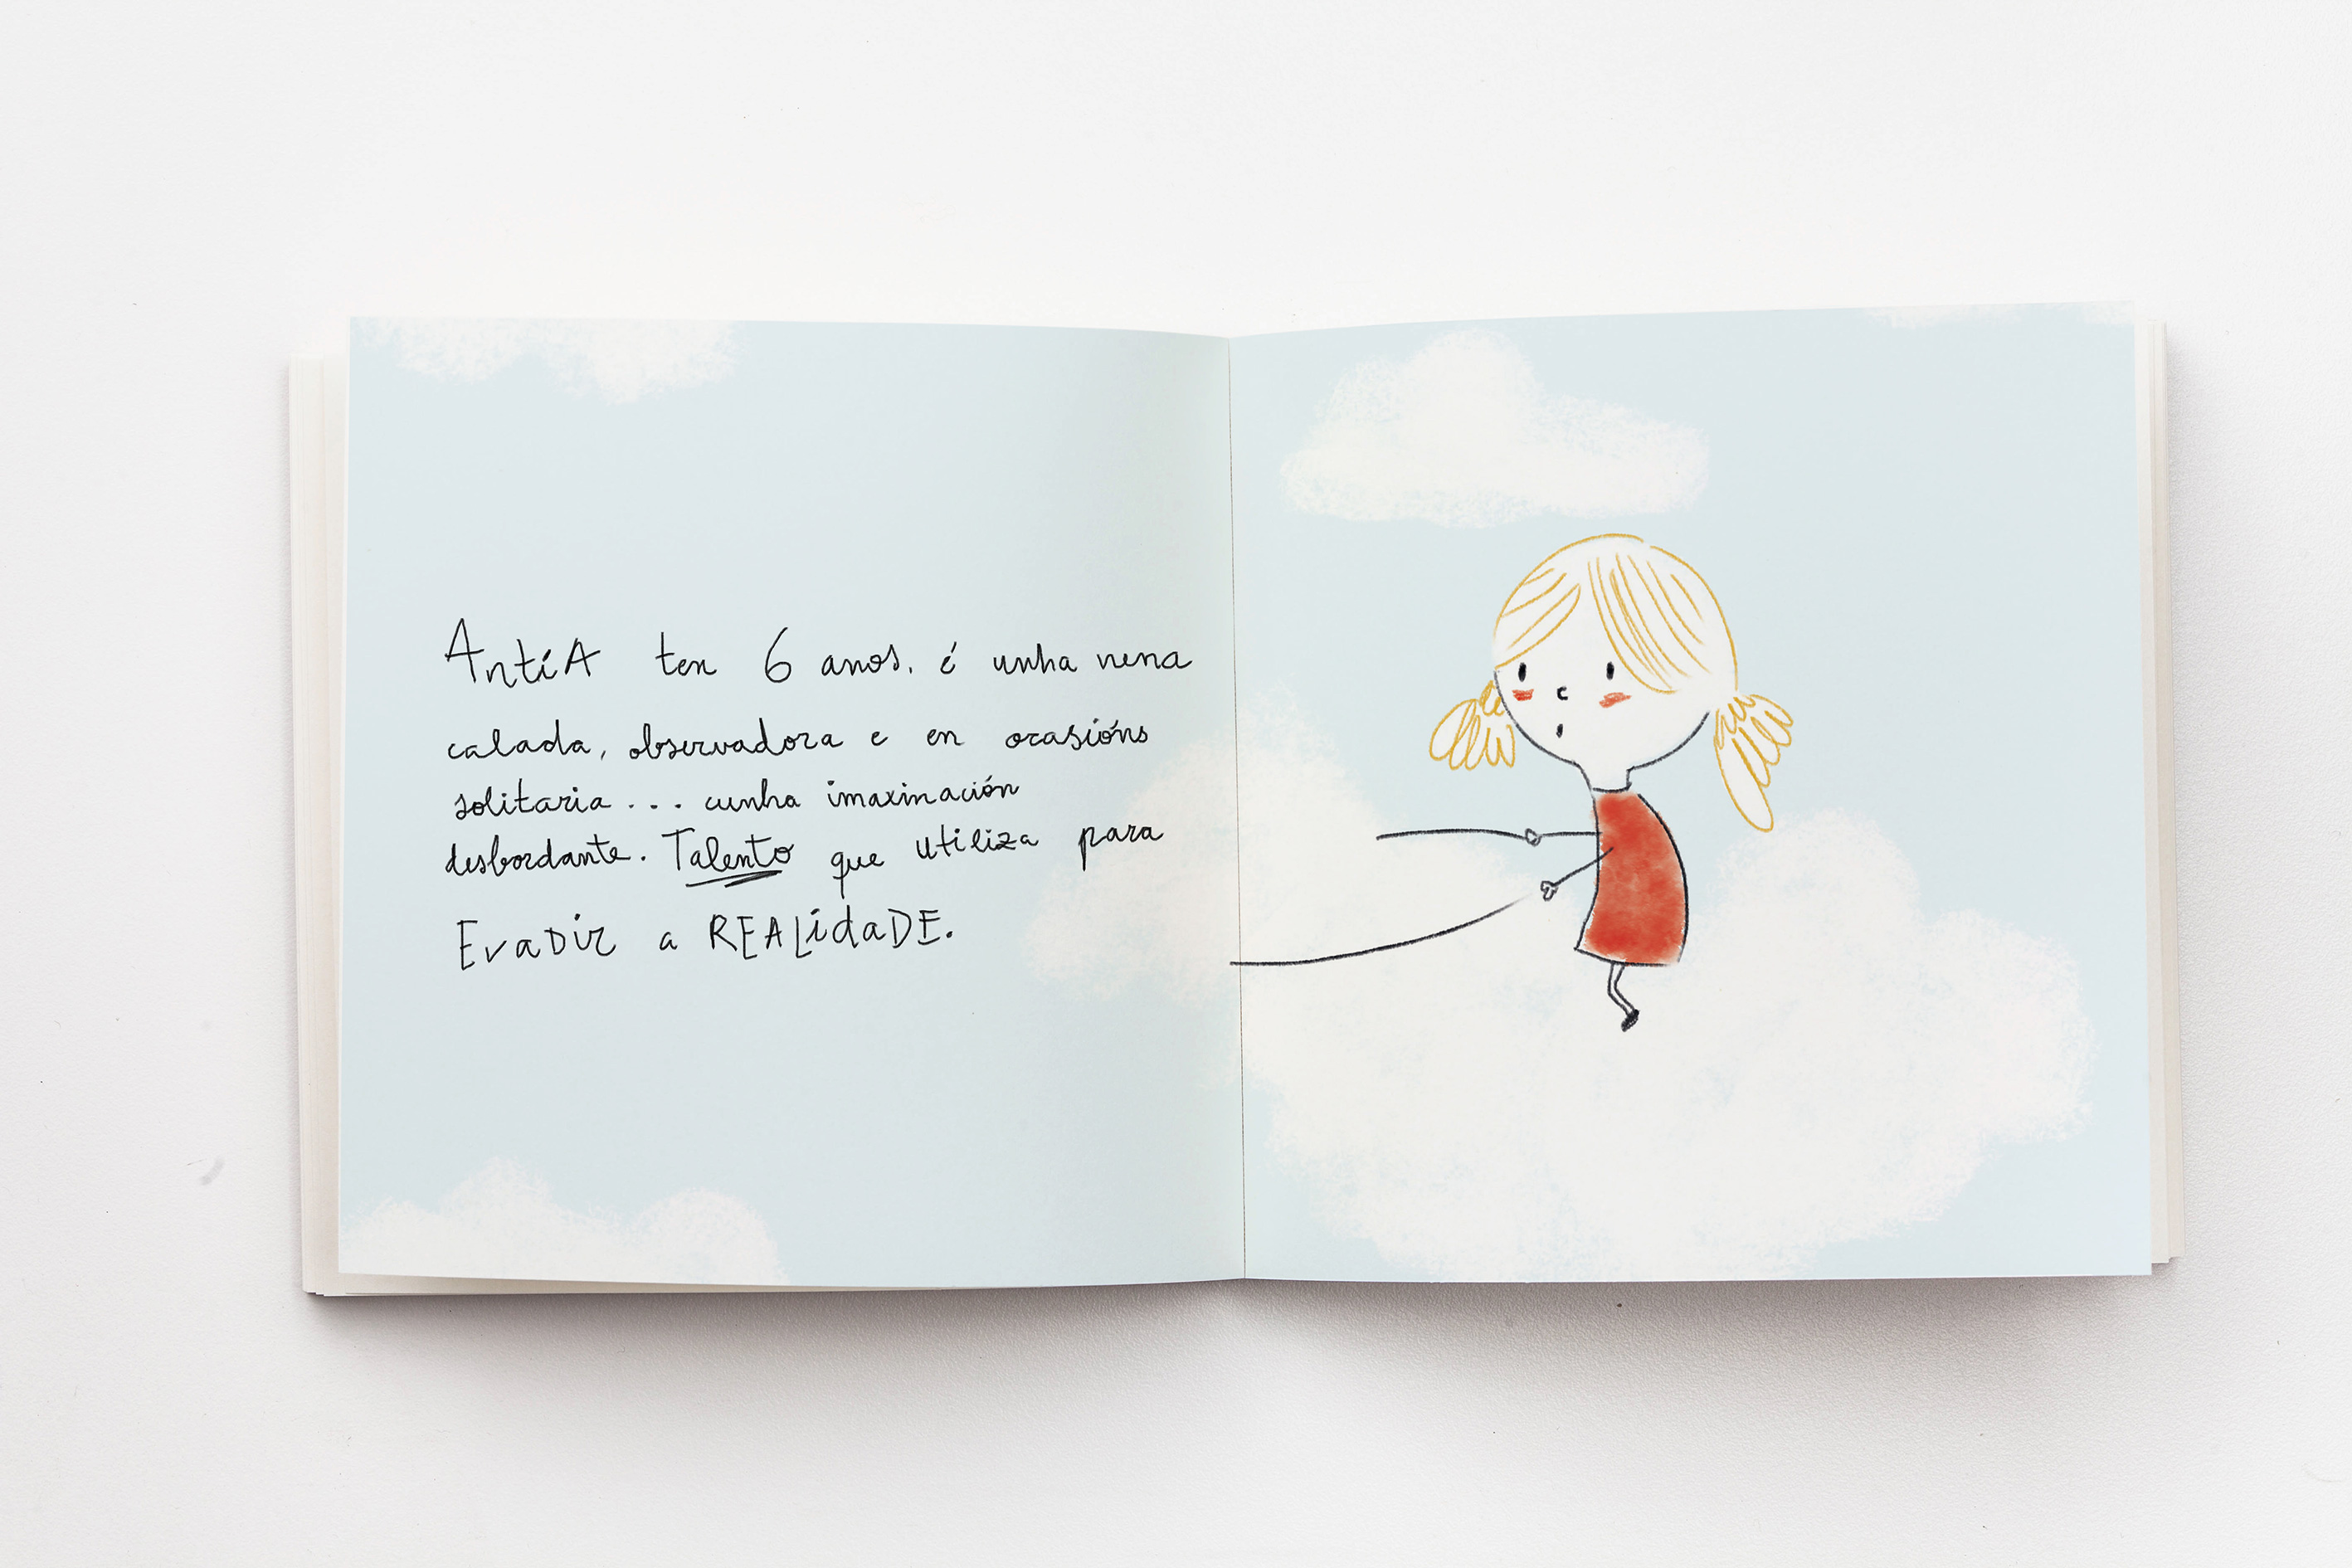 AntíA ten 6 anos. é unha nena
calada, observadora e en ocasións
solitaria... cunha imaxinación
desbordante. Talento que utiliza para
EvaDir a REALidaDE.